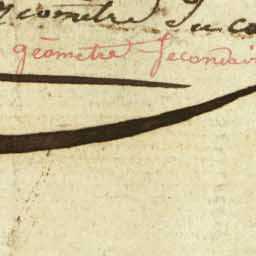 géometre du ca
géometre Secondai